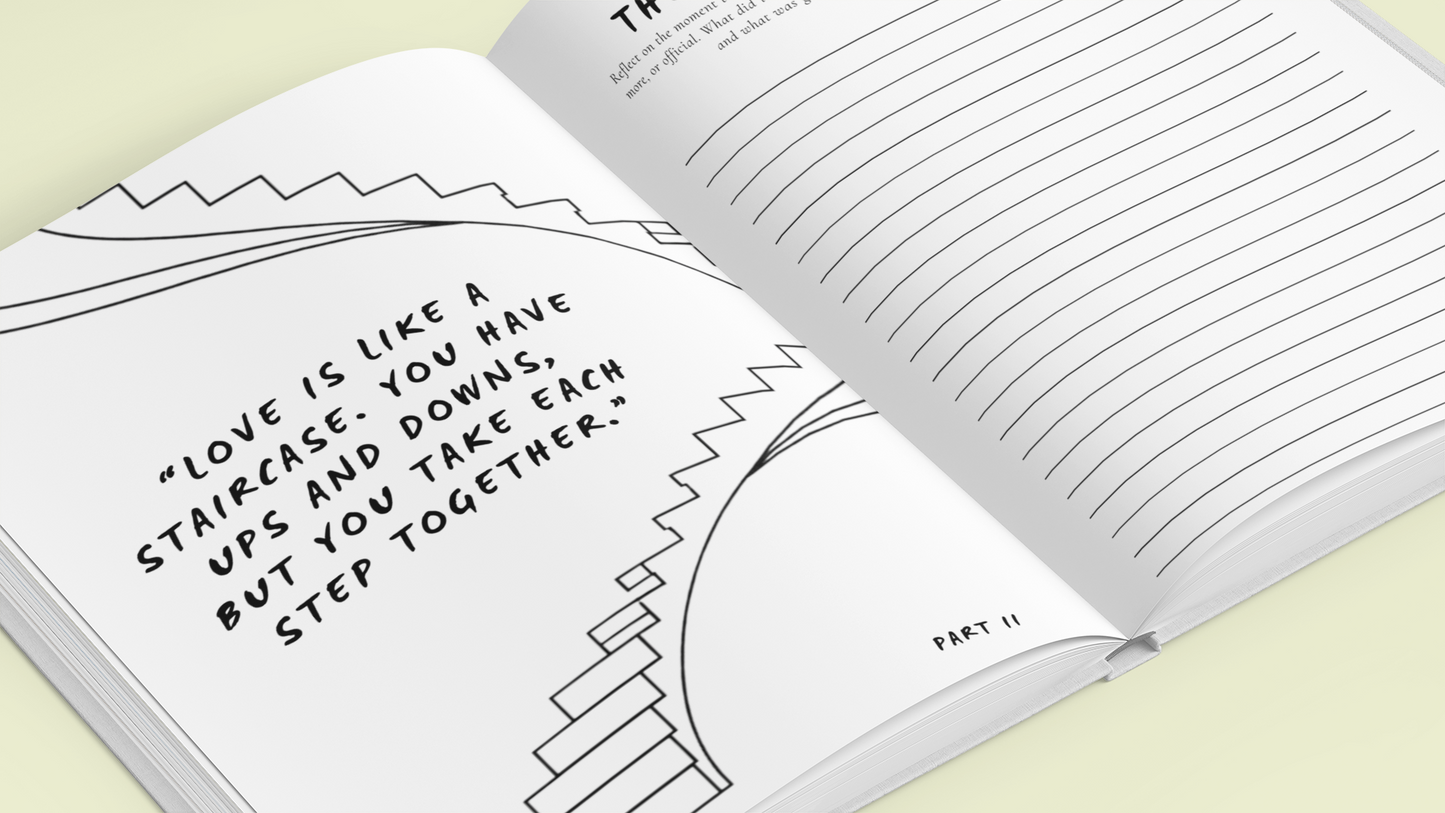 “LOVE IS LIKE A
STAIRCASE. YOU HAVE
UPS AND DOWNS,
BUT YOU TAKE EACH
STEP TOGETHER.”
PART II
Reflect on the moment
more, or official. What did
and what was